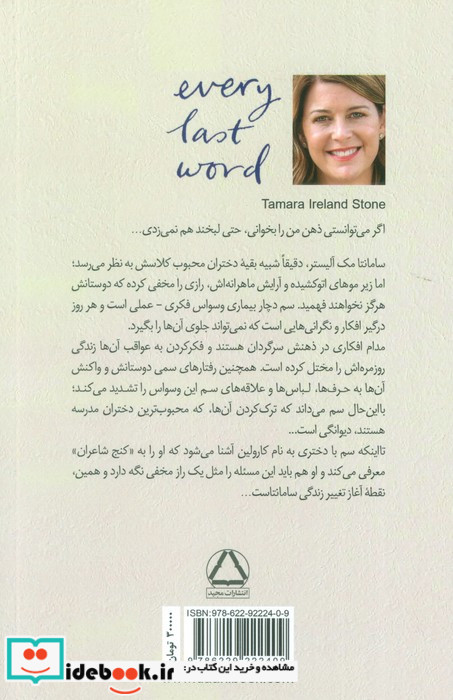 every
last
word
Tamara Ireland Stone
اگر می‌توانستی ذهن من را بخوانی، حتی لبخند هم نمی‌زدی...
سامانتا مک آلیستر، دقیقاً شبیه بقیهٔ دختران محبوب کلاسش به نظر می‌رسد؛
اما زیر موهای اتوکشیده و آرایش ماهرانه‌اش، رازی را مخفی کرده که دوستانش
هرگز نخواهند فهمید. سم دچار بیماری وسواس فکری - عملی است و هر روز
درگیر افکار و نگرانی‌هایی است که نمی‌تواند جلوی آن‌ها را بگیرد.
مدام افکاری در ذهنش سرگردان هستند و فکرکردن به عواقب آن‌ها زندگی
روزمره‌اش را مختل کرده است. همچنین رفتارهای سمی دوستانش و واکنش
آن‌ها به حرف‌ها، لباس‌ها و علاقه‌های سم این وسواس را تشدید می‌کند؛
بااین‌حال سم می‌داند که ترک‌کردن آن‌ها، که محبوب‌ترین دختران مدرسه
هستند، دیوانگی است...
تااینکه سم با دختری به نام کارولین آشنا می‌شود که او را به «کنج شاعران»
معرفی می‌کند و او هم باید این مسئله را مثل یک راز مخفی نگه دارد و همین،
نقطهٔ آغاز تغییر زندگی سامانتاست...
انتشارات مجید
ISBN: 978-622-92224-0-9
۳۰۰۰۰۰ تومان
مشاهده و خرید این کتاب در:
idebook.ir